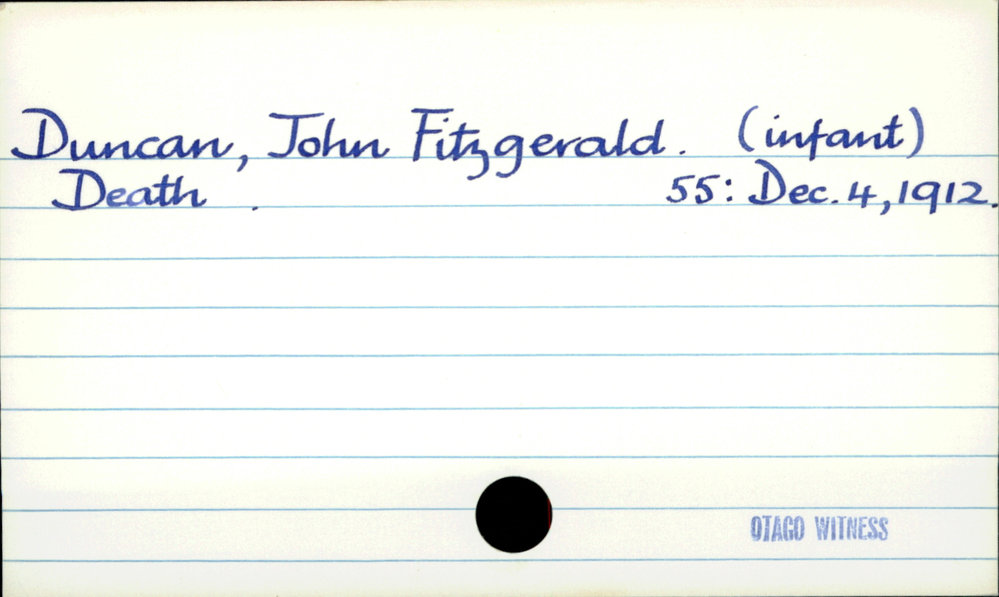 Duncan, John Fitzgerald. (infant)
Death . 55: Dec. 4, 1912.
OTAGO WITNESS